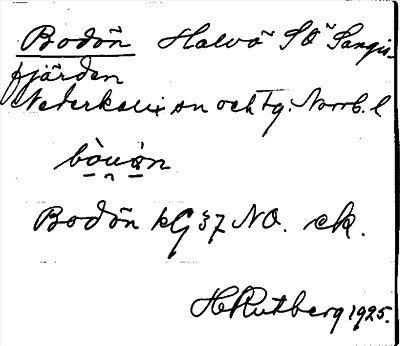 Bodön Halvö SO Sangis-
fjärden
Nederkalix sn och tg. Norrb. l
bòuòn
Bodön kG 37 NO. ek.
H Rutberg 1925.